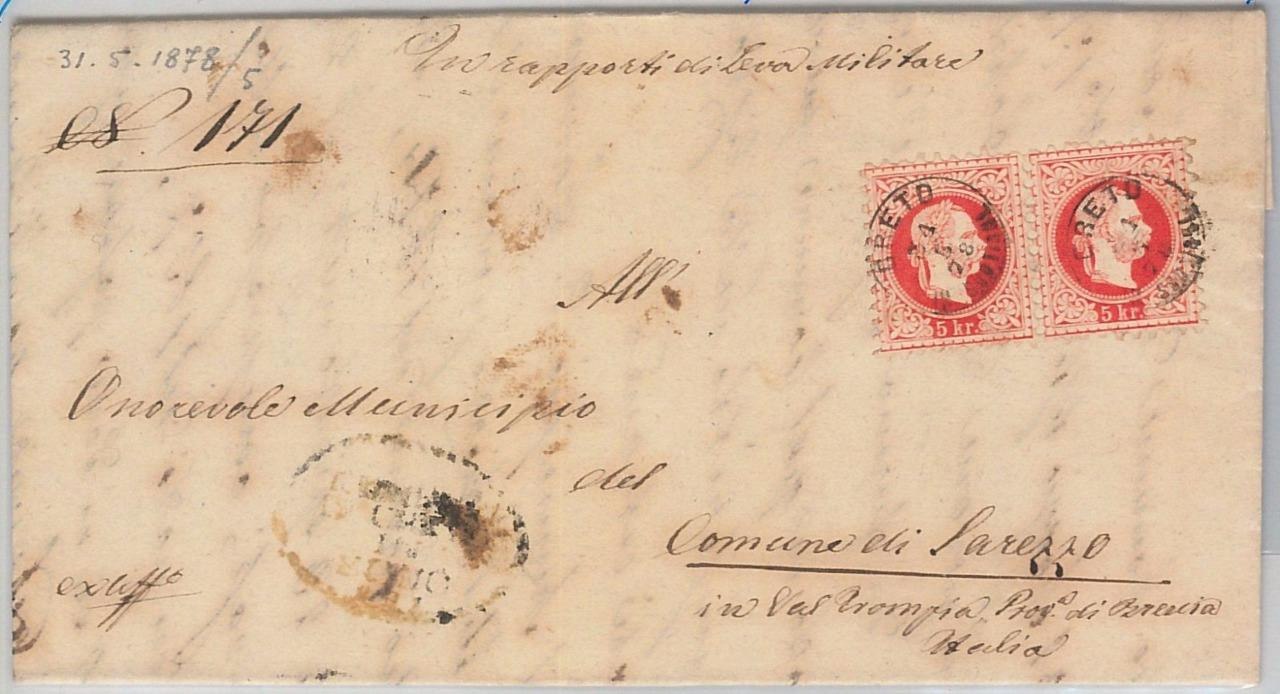 31.5.1878/5
In rapporti di Leva Militare
N8. 171
CRETO
5 kr.
CRETO
5 kr.
All'
Onorevole Municipio
del
Comune di Sarezzo
in Val Trompia, Prov.ª di Brescia
Italia
ex uff.º